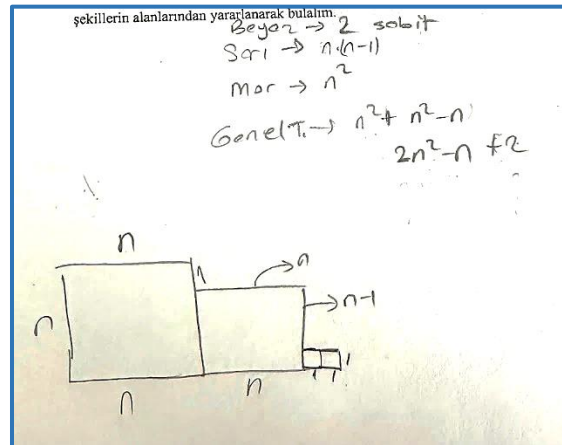 şekillerin alanlarından yararlanarak bulalım.
Beyaz → 2 sabit
Sarı → n.(n-1)
mor → n²
Genel T. → n² + n² - n
2n² - n + 2
n
n
1
n
n-1
1
1 1
n
n